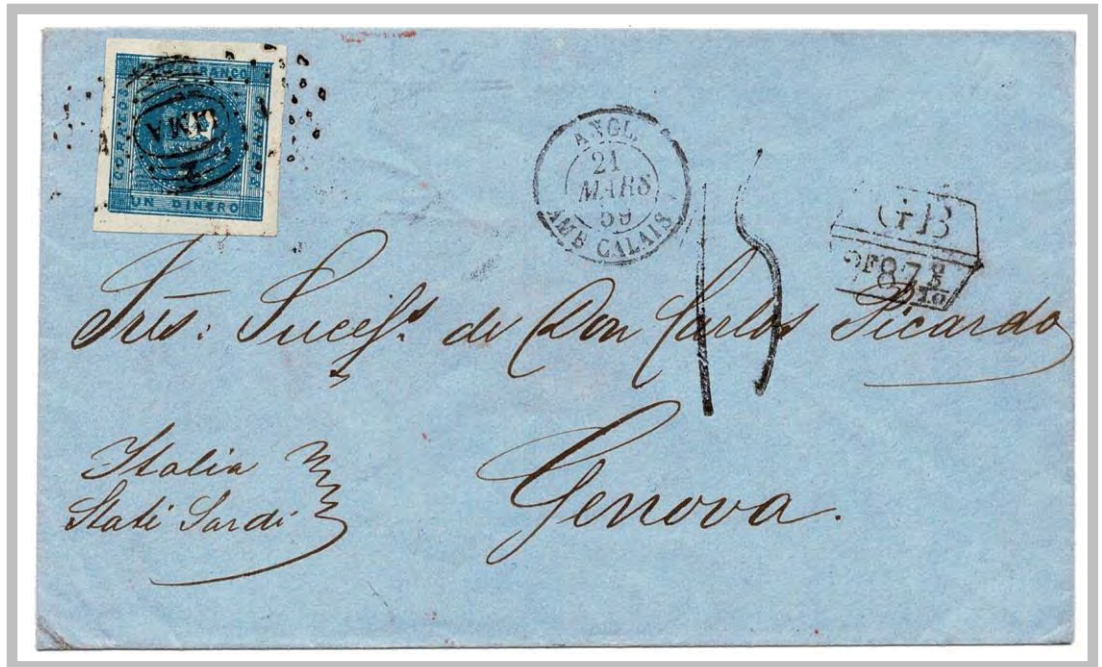 PORTE FRANCO
CORREOS
UN DINERO
LIMA
2
ANGL.
21
MARS
59
AMB. CALAIS
15
GB
87 8/10
Sres: Sucesˢ. de Don Carlos Picardo
Italia
Stati Sardi
Genova.